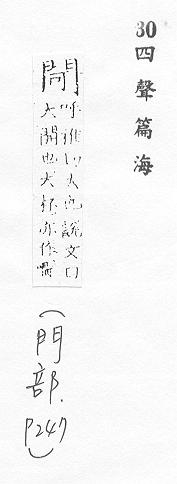 30
四聲篇海
閜
呼雅切大也說文曰
大開也大杯亦作
(門部. P247)